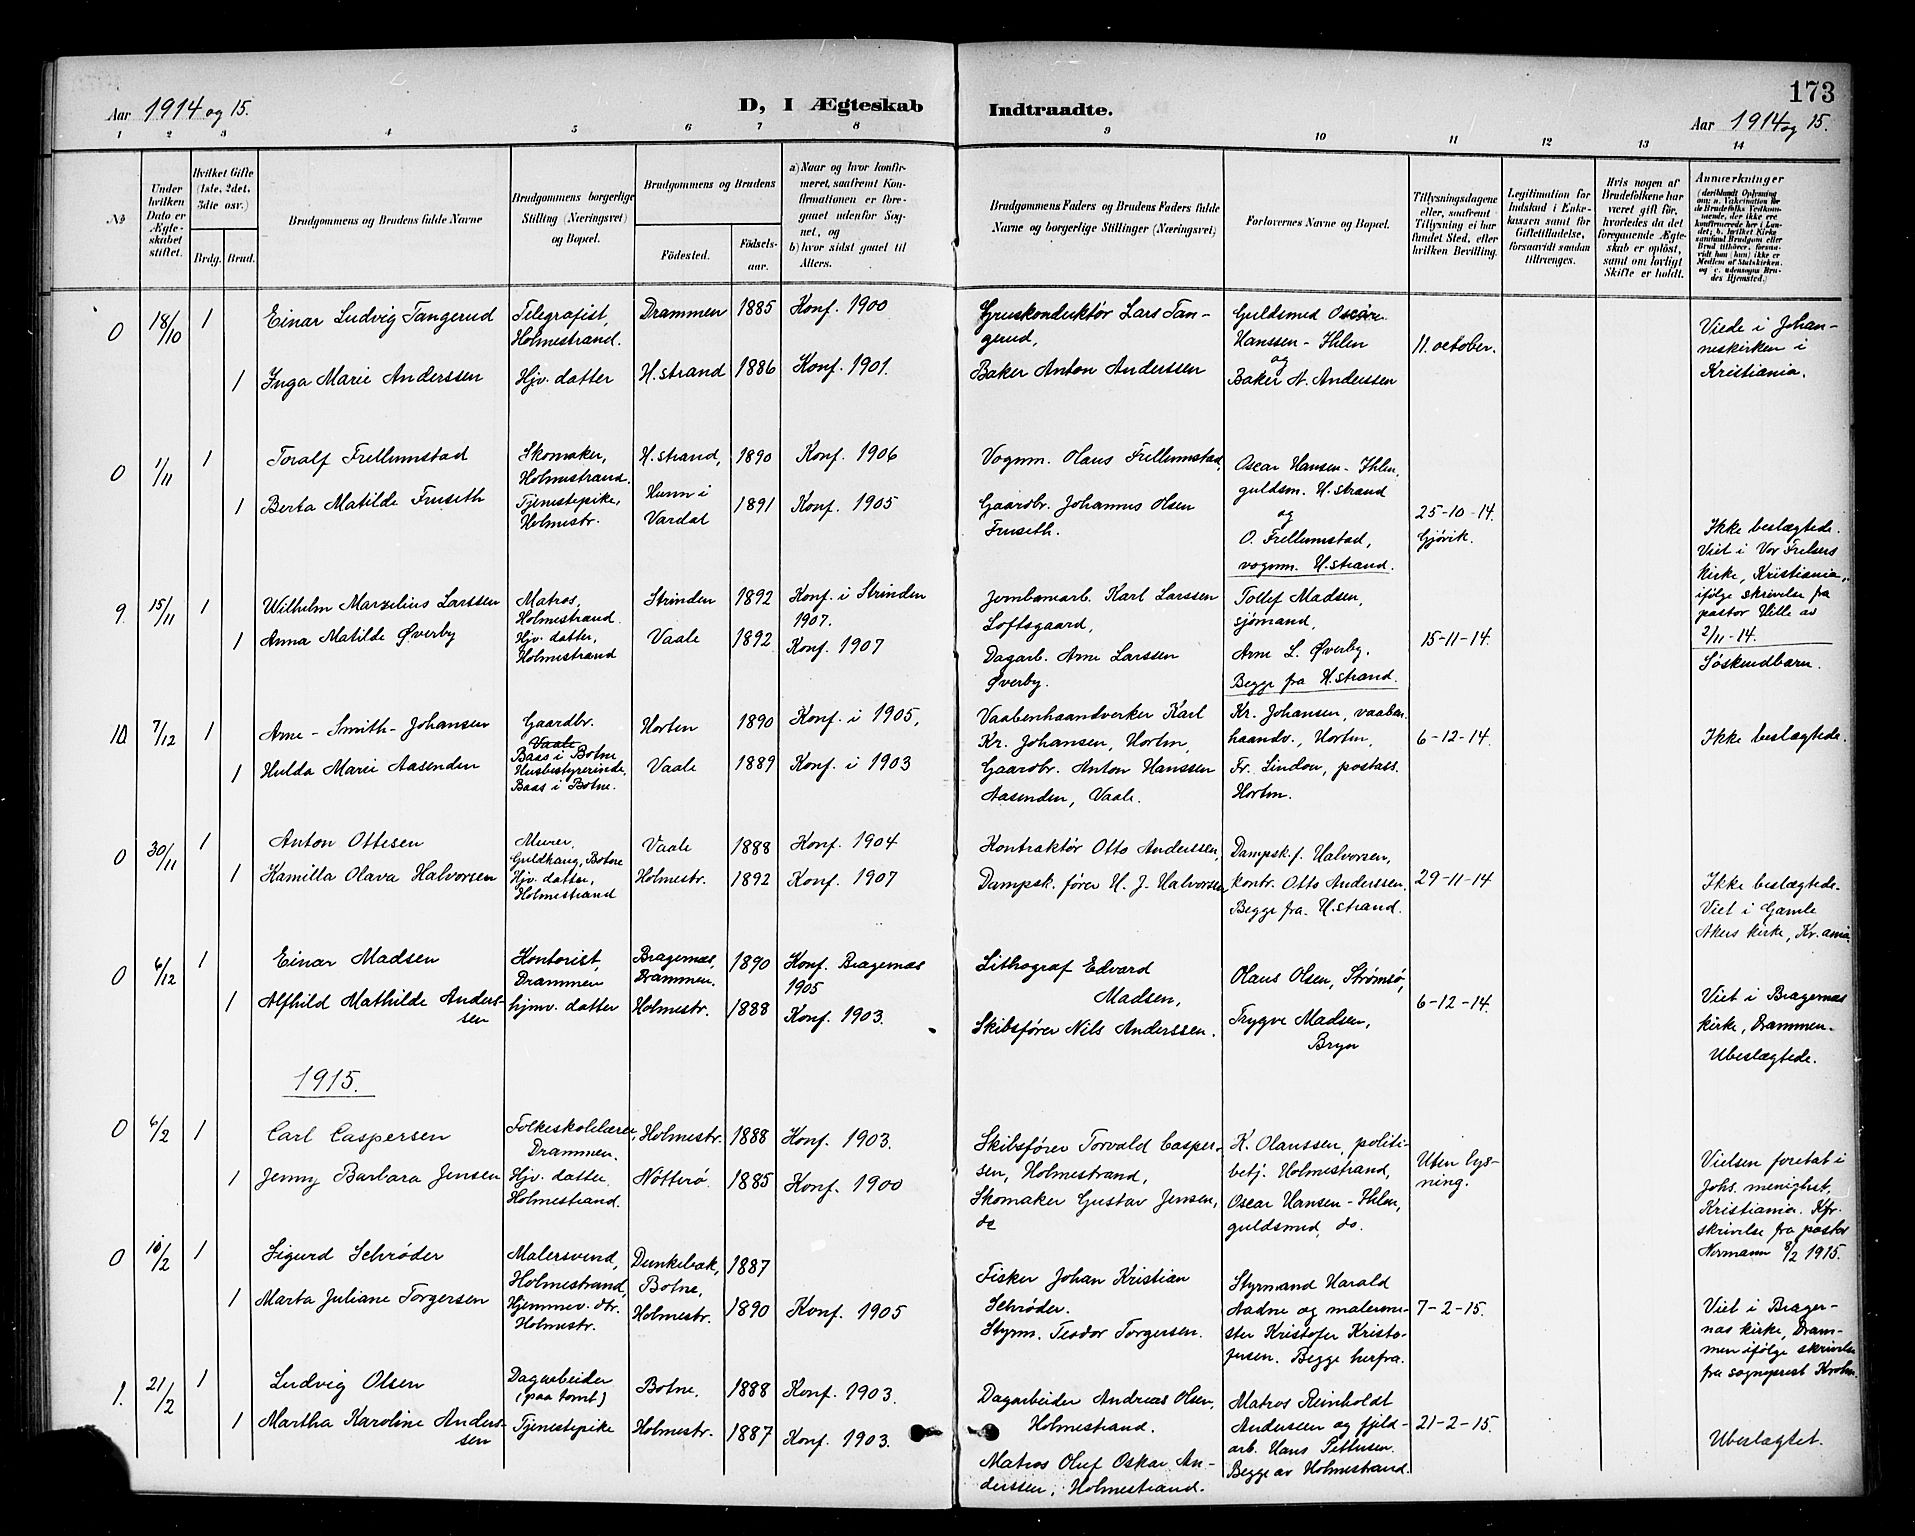 173
Aar 1914 og 15.
D, I Ægteskab Indtraadte.
Aar 1914 og 15.
1 2 3 4 5 6 7 8 9 10 11 12 13 14
No
Under hvilken Dato er Ægteskabet stiftet.
Hvilket Gifte (1ste, 2det, 3dte osv.)
Brdg. Brud.
Brudgommens og Brudens fulde Navne
Brudgommens borgerlige Stilling (Næringsvei) og Bopæl.
Brudgommens og Brudens
Födested.
Födselsaar.
a) Naar og hvor konfirmeret, saafremt Konfirmationen er foregaaet udenfor Sognet, og
b) hvor sidst gaaet til Alters.
Brudgommens Faders og Brudens Faders fulde Navne og borgerlige Stillinger (Næringsvei)
Forlovernes Navne og Bopæl.
Tillysningsdagene eller, saafremt Tillysning ei har fundet Sted, efter hvilken Bevilling.
Legitimation for Indskud i Enkekassen samt for Giftetilladelse, forsaavidt saadan tiltrænges.
Hvis nogen af Brudefolkene har været gift för, hvorledes da det foregaaende Ægteskab er oplöst, samt om lovligt Skifte er holdt.
Anmærkninger (deriblandt Oplysning om: a. Vakcination for de Brudefolks Vedkommende, der ikke ere konfirmerede her i Landet; b. hvilket Kirkesamfund Brudgom eller Brud tilhörer, forsavidt han (hun) ikke er Medlem af Statskirken, og c. udensogns Brudes Hjemsted.)
0 18/10 1 Einar Ludvig Tangerud Telegrafist, Holmestrand. Drammen 1885 Konf. 1900 Gruskonduktør Lars Tangerud, Guldsmed Oscar Hanssen-Ihlen og 11. october. Viede i Johanneskirken i Kristiania.
1 Inga Marie Anderssen Hjv. datter H.strand 1886 Konf. 1901. Baker Anton Anderssen Baker A. Anderssen
0 1/11 1 Toralf Frellumstad Skomaker, Holmestrand. H.strand, 1890 Konf. 1906 Vognm. Olaus Frellumstad, Oscar Hansen-Ihlen, guldsm. H.strand og
1 Berta Matilde Fruseth Tjenestepike, Holmestr. Hunn i Vardal 1891 Konf. 1905 Gaardbr. Johannes Olsen Fruseth. O. Frellumstad, vognm. H.strand. 25-10-14. Gjøvik. Ikke beslægtede. Viet i Vor Frelsers kirke, Kristiania, ifølge skrivelse fra pastor Hille av 2/11-14.
9 15/11 1 Wilhelm Marzelius Larssen Matros, Holmestrand. Strinden 1892 Konf. i Strinden 1907. Jernbanearb. Karl Larssen Loftsgaard, Tollef Madsen, sjømand,
1 Anna Matilde Øverby Hjv. datter, Holmestrand Vaale 1892 Konf. 1907 Dagarb. Arne Larssen Øverby. Arne L. Øverby. Begge fra H.strand. 15-11-14. Søskendbarn.
10 7/12 1 Arne-Smith-Johansen Gaardbr. Vaale Baas i Botne Horten 1890 Konf. i 1905, Vaabenhaandverker Karl Kr. Johansen, Horten, Kr. Johansen, vaabenhaandv., Horten, 6-12-14. Ikke beslægtede.
1 Hulda Marie Aasenden Husbestyrerinde, Baas i Botne. Vaale 1889 Konf. i 1903 Gaardbr. Anton Hanssen Aasenden, Vaale. Fr. Lindøe, postass. Horten.
0 30/11 1 Anton Ottesen Murer, Guldhaug, Botne Vaale 1888 Konf. 1904 Kontraktør Otto Anderssen, Dampsk. f. Halvorsen,
1 Kamilla Olava Halvorsen Hjv. datter, Holmestrand Holmestr. 1892 Konf. 1907 Dampsk. fører H. J. Halvorsen, kontr. Otto Anderssen. Begge fra H.strand. 29-11-14 Ikke beslægtede. Viet i Gamle Akers kirke, Kr.ania.
0 6/12 1 Einar Madsen Kontorist, Drammen Bragernæs, Drammen. 1890 Konf. Bragernæs 1905 Lithograf Edvard Madsen, Olaus Olsen, Strømsø,
1 Alfhild Mathilde Anderssen hjmv. datter Holmestr. 1888 Konf. 1903. Skibsfører Nils Anderssen. Trygve Madsen, Bryn 6-12-14. Viet i Bragernæs kirke, Drammen. Ubeslægtede.
1915.
0 6/2 1 Carl Caspersen Folkeskolelærer, Drammen. Holmestr. 1888 Konf. 1903. Skibsfører Torvald Caspersen, Holmestrand, K. Olanssen, politibetj. Holmestrand,
1 Jenny Barbara Jensen Hjv. datter, Holmestrand. Nötterö. 1885 Konf. 1900 Skomaker Gustav Jensen, do Oscar Hansen-Ihlen, guldsmed, do. Uten lysning. Vielsen foretat i Johs. menighet, Kristiania. Kfr. skrivelse fra pastor Normann 8/2 1915.
0 10/2 1 Sigurd Schrøder Malersvend, Holmestrand, Dunkebæk, Botne, 1887 Fisker Johan Kristian Schrøder. Styrmand Harald Aadne og malermester Kristofer Kristofersen. Begge herfra.
1 Marta Juliane Torgersen Hjemmev. dtr. Holmestr. Holmestr. 1890 Konf. 1905 Styrm. Teodor Torgersen. 7-2-15. Viet i Bragernæs kirke, Drammen ifølge skrivelse fra sogneprest
1. 21/2 1 Ludvig Olsen Dagarbeider (paa tomt) Botne, 1888 Konf. 1903. Dagarbeider Andreas Olsen, Holmestrand. Matros Reinholdt Andersen og fjeldarb. Hans Pettersen. Begge av Holmestrand.
1 Martha Karoline Anderssen Tjenestepike Holmestr. 1887 Konf. 1903. Matros Oluf Oskar Anderssen, Holmestrand. 21-2-15. Ubeslægtet.